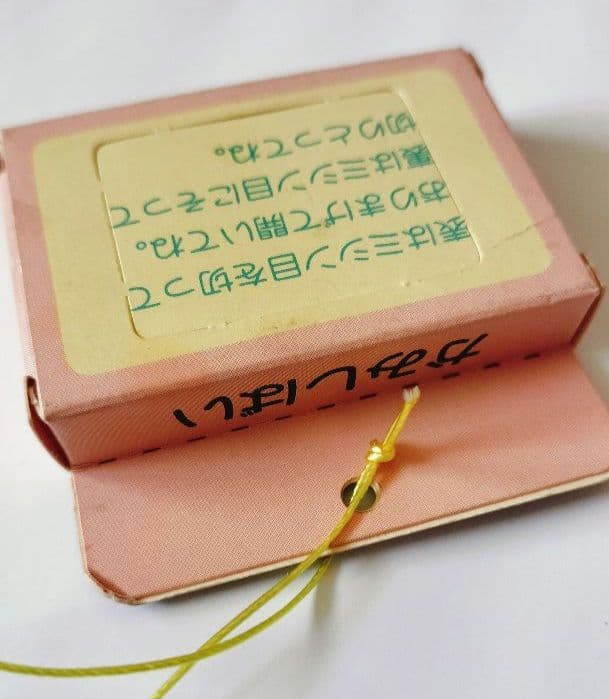 表はミシン目を切って
おりまげて開いてね。
裏はミシン目にそって
切りとってね。
かみしばい